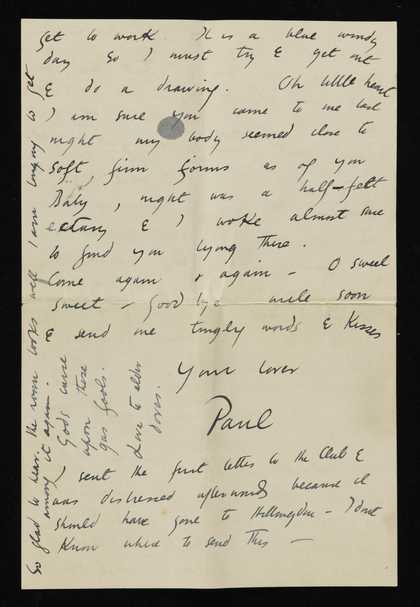 get to work. It is a blue windy
day so I must try & get out
& do a drawing. Oh little heart
I am sure you came to me last
night my body seemed close to
soft, firm forms as of you
Baby, night was a half-felt
ectasy & I woke almost sure
to find you lying there.
Come again & again - O sweet
sweet - Goodbye write soon
& send me tingly words & Kisses
Your lover
Paul
I sent the first letter to the Club &
was distressed afterwards because it
should have gone to Hillmorton - I dont
Know where to send This -
Gods curse
upon those
gas fools.
Love to elder
doves.
So glad to hear the room looks well I am longing to get
among it again.